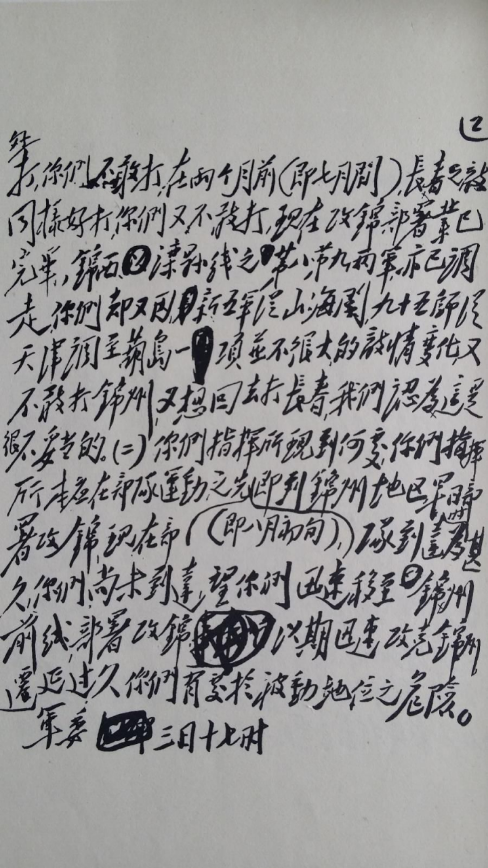 能
打，你們不敢打，在两个月前（即七月間），長春之敵
同樣好打，你們又不敢打。現在攻錦部署業已
完畢，錦西灤县线之第八第九两軍亦已調
走，你們却又因新五軍从山海関九十五師从
天津調至葫島一項並不很大的敵情变化，又
不敢打錦州，又想回去打長春，我們認為這是
很不妥当的。（二）你們指揮所現到何處，你們指揮
所本应在部隊運動之先即到錦州地區，早日部
（即八月初旬）
署攻錦，現在部隊到達為甚
久，你們尚未到達，望你們迅速移至錦州
前线，部署攻錦，以期迅速攻克錦州，
遷延过久你們有處於被動地位之危險。
軍委 三日十七时